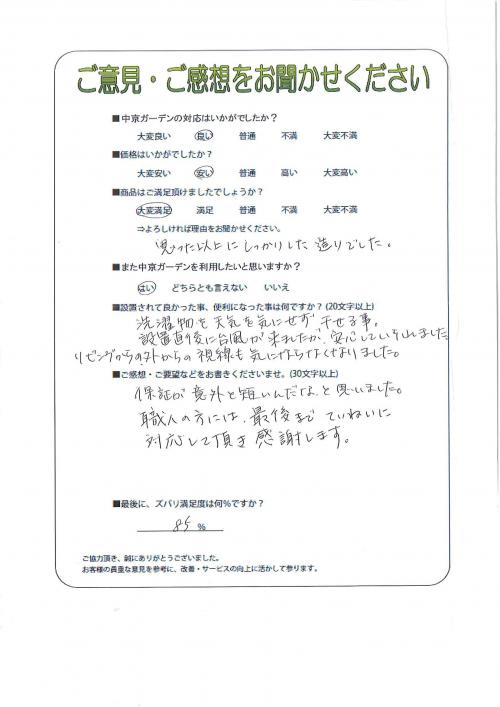 ご意見・ご感想をお聞かせください
■中京ガーデンの対応はいかがでしたか？
大変良い 良い 普通 不満 大変不満
■価格はいかがでしたか？
大変安い 安い 普通 高い 大変高い
■商品はご満足頂けましたでしょうか？
大変満足 満足 普通 不満 大変不満
⇒よろしければ理由をお聞かせください。
思った以上にしっかりした造りでした。
■また中京ガーデンを利用したいと思いますか？
はい どちらとも言えない いいえ
■設置されて良かった事、便利になった事は何ですか？(20文字以上)
洗濯物を天気を気にせず干せる事。
設置直後に台風が来ましたが、安心していられました
リビングからの外からの視線も気にならなくなりました。
■ご感想・ご要望などをお書きくださいませ。(30文字以上)
保証が意外と短いんだな、と思いました。
職人の方には、最後までていねいに
対応して頂き感謝します。
■最後に、ズバリ満足度は何％ですか？
85 ％
ご協力頂き、誠にありがとうございました。
お客様の貴重な意見を参考に、改善・サービスの向上に活かして参ります。